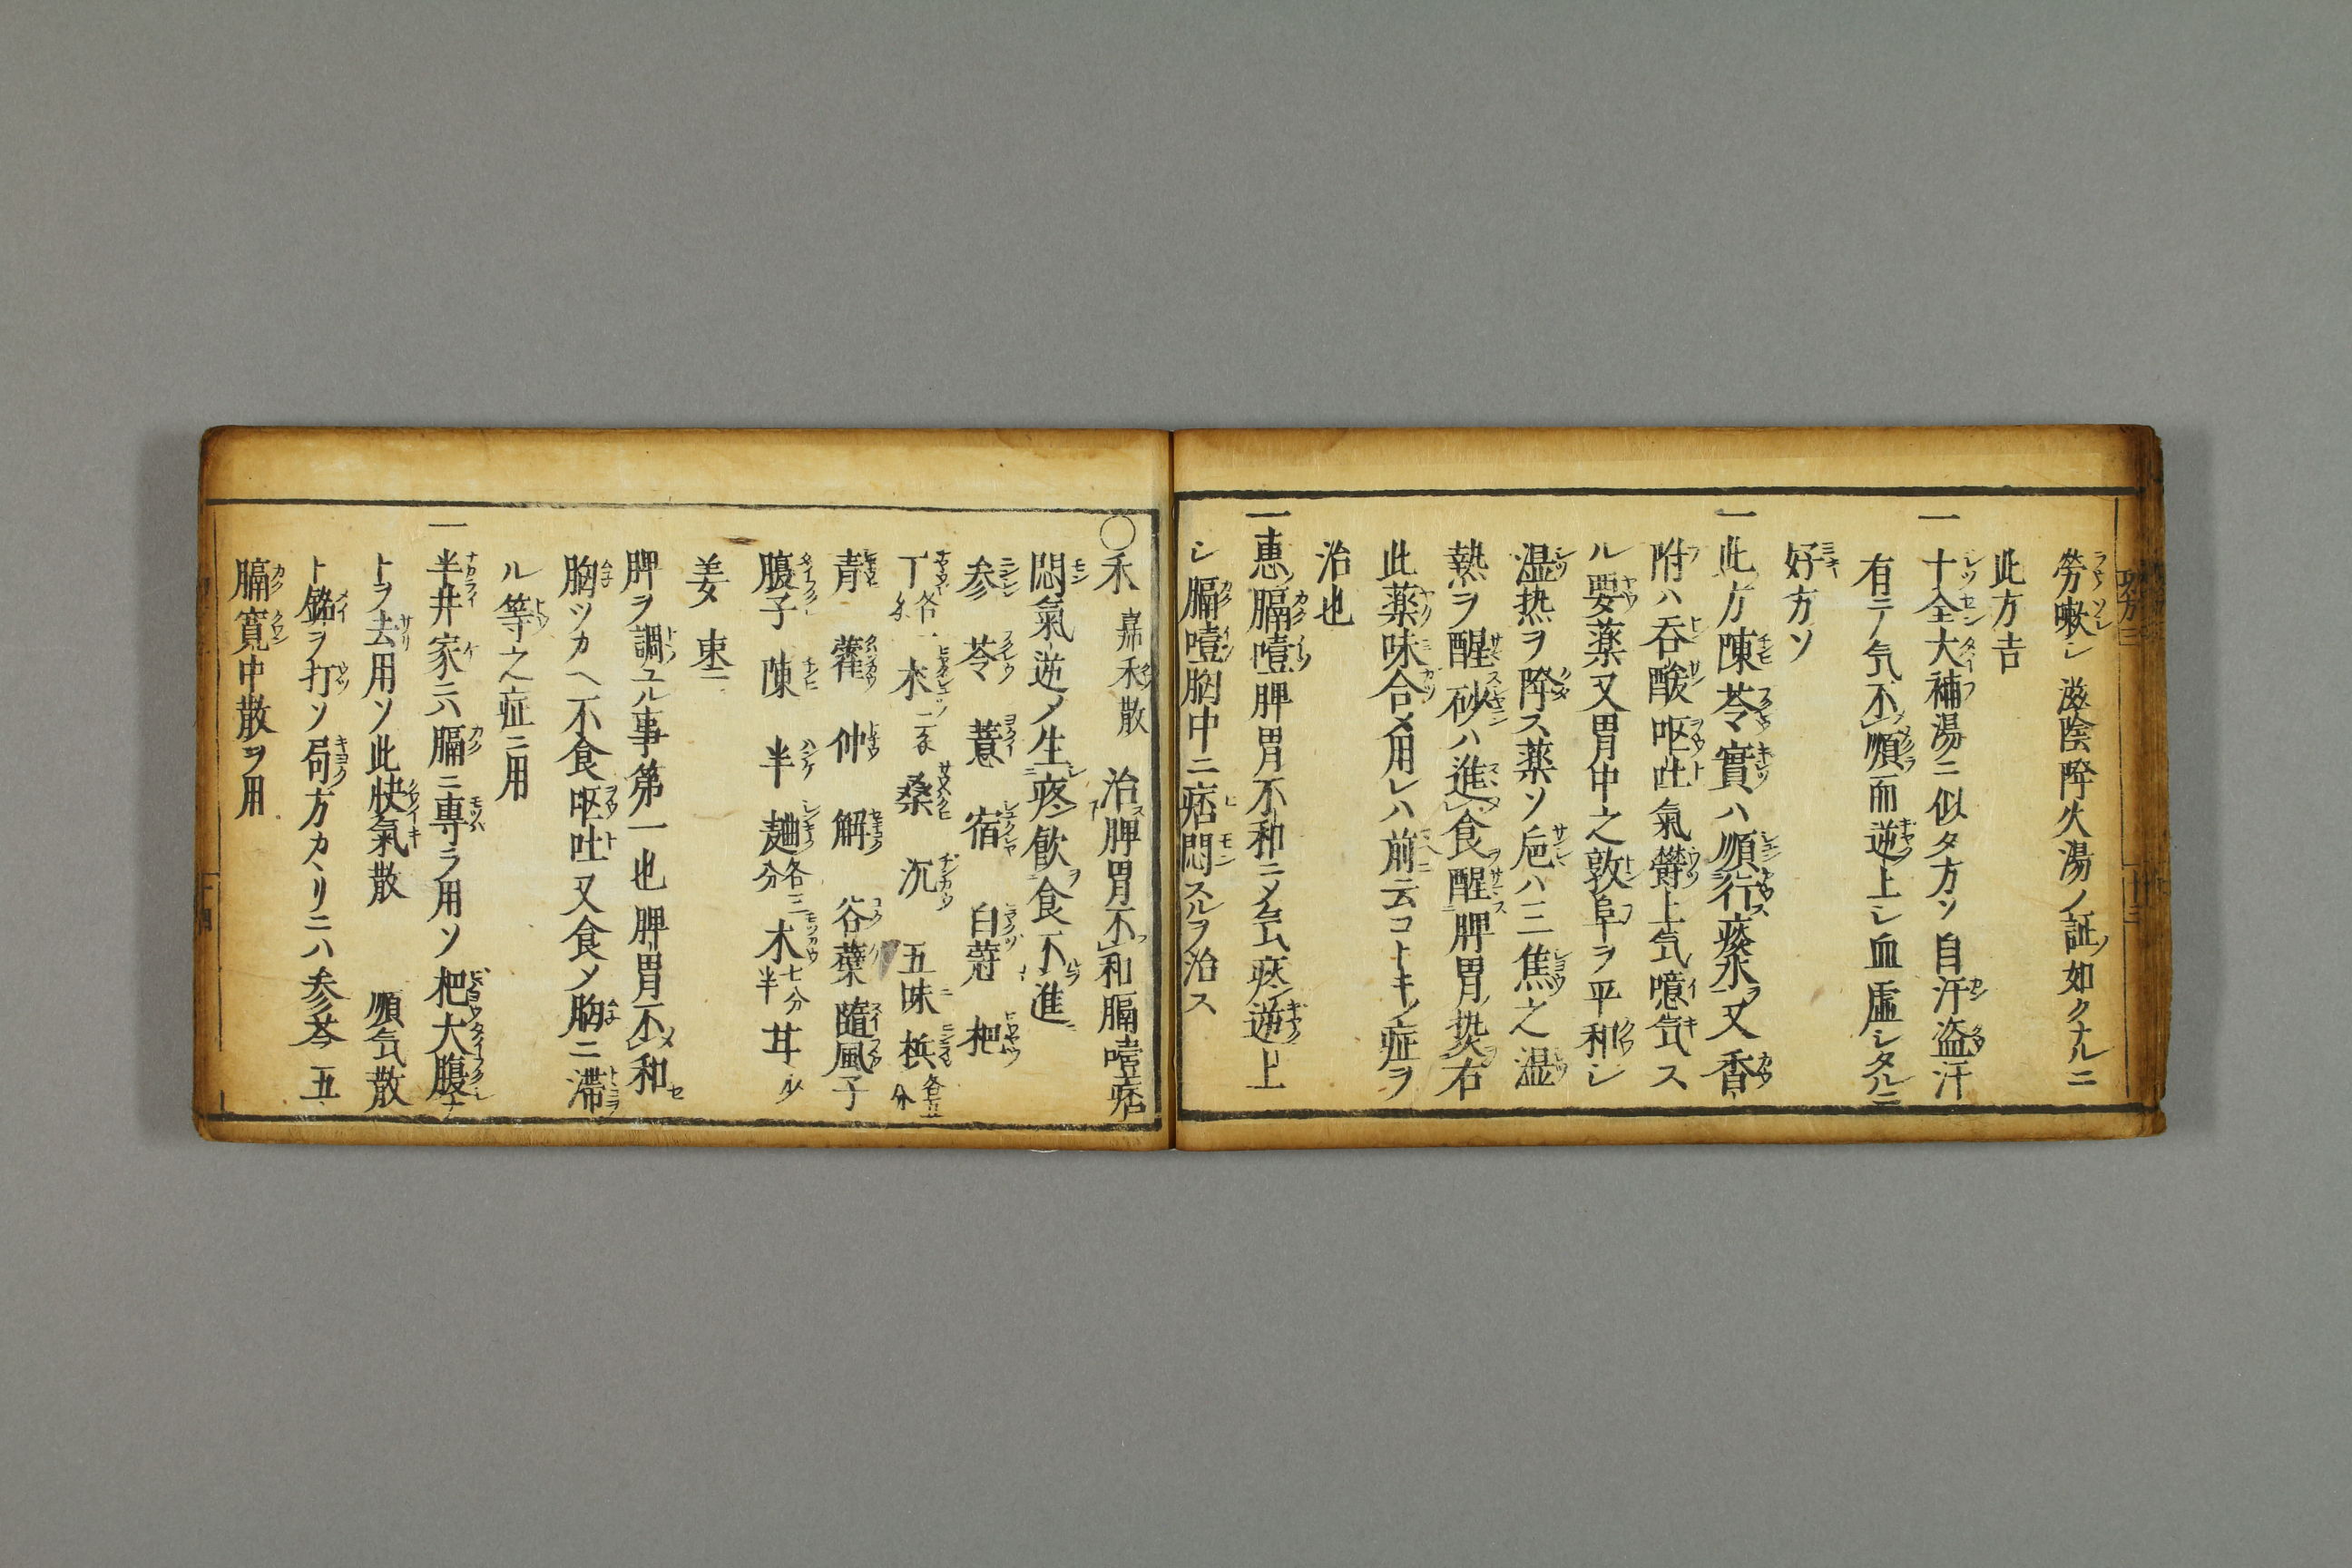 労嗽シ滋陰降火湯ノ証如クナルニ
此方吉
一十全大補湯ニ似タ方ソ自汗盗汗
有テ气不順而逆上シ血虚シタルニ
好方ソ
一此方陳苓實ハ順行痰水又香
附ハ呑酸呕吐氣欝上气噫气ス
ル要薬又胃中之敦阜ヲ平和シ
湿热ヲ降ス薬ソ梔ハ三焦之湿
熱ヲ醒砂ハ進食醒脾胃
此薬味合メ用レハ前云コトキノ症ヲ
治也
一惠膈噎脾胃不和ニメ气逆上
シ膈噎胸中ニ痞悶スルヲ治ス
○禾 嘉禾散 治脾胃不和膈噎痞
悶氣逆メ生疼飲食不進
参 苓 薏 宿 白蔻 枇
丁 各一 朮 二 桑 沉 五味 梹 各五分
青 藿 仲 解 谷蘗 隨風子
腹子 陳 半 麯 各三分 木 七分半 甘 少
姜 束二
脾ヲ調ユル事第一也脾胃不和
胸ツカヘ不食呕吐又食メ胸ニ滞
ル等之症ニ用
一半井家ニハ膈ニ專ラ用ソ枇大腹
トヲ去用ソ此快氣散 順气散
ト銘ヲ打ソ局方カヽリニハ参芩五
膈寛中散ヲ用